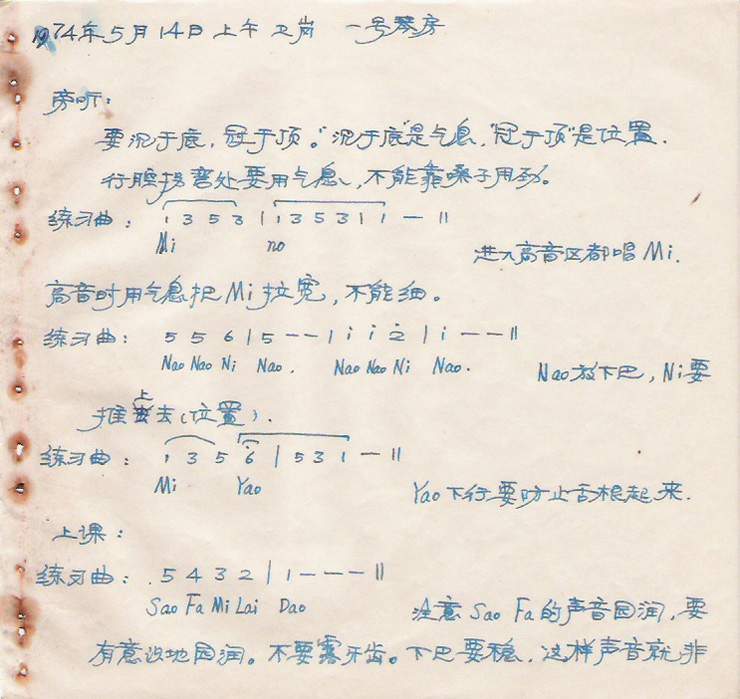 1974年5月14日上午 卫岗 一号琴房
旁听：
要沉于底，冠于顶。"沉于底"是气息，"冠于顶"是位置．
行腔拐弯处要用气息，不能靠嗓子用劲。
练习曲： 1 3 5 3 | 1 3 5 3 1 | 1 — ||
Mi no
进入高音区都唱 Mi.
高音时用气息把 Mi 拉宽，不能细。
练习曲： 5 5 6 | 5 - - | i i 2̇ | i - - ||
Nao Nao Ni Nao. Nao Nao Ni Nao.
Nao 放下巴，Ni 要
推上去(位置)．
练习曲： 1 3 5 6 | 5 3 1 — ||
Mi Yao
Yao 下行要防止舌根起来．
上课：
练习曲： 5 4 3 2 | 1 - - - ||
Sao Fa Mi Lai Dao
注意 Sao Fa 的声音园润，要
有意识地园润。不要露牙齿。下巴要稳，这样声音就非